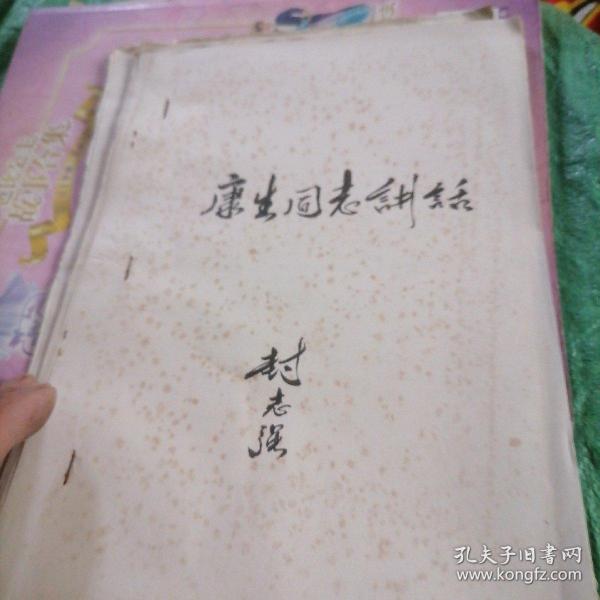 康生同志讲話
封
志
强
故事合集
孔夫子旧书网
www.kongfz.com